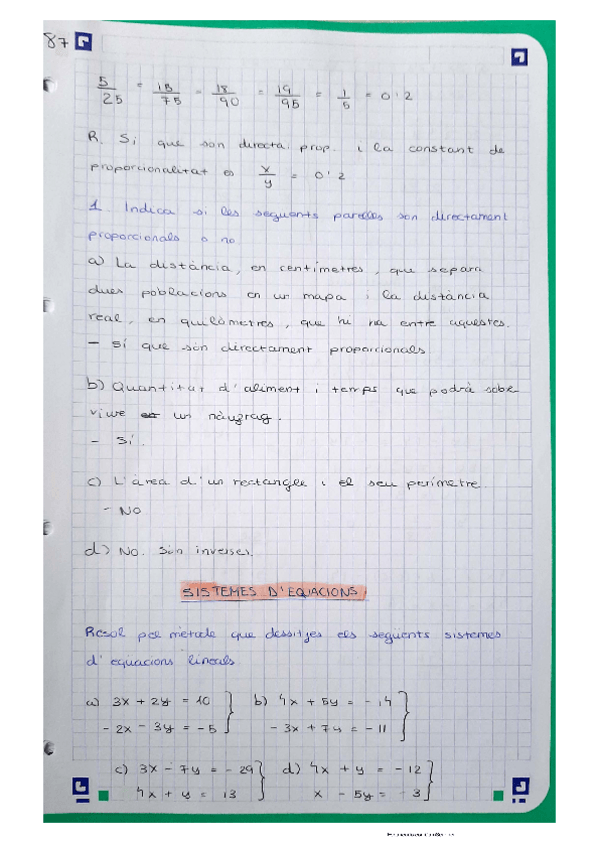 87
5/25 = 15/75 = 18/90 = 19/95 = 1/5 = 0'2
R. Sí que son directa. prop. i la constant de
proporcionalitat es x/y = 0'2
1. Indica si les seguents parelles son directament
proporcionals o no
a) La distància, en centímetres, que separa
dues poblacions en un mapa i la distància
real, en quilòmetres, que hi ha entre aquestes.
- Sí que són directament proporcionals
b) Quantitat d'aliment i temps que podrà sobre
viure un nàufrag.
- Sí.
c) L'àrea d'un rectangle i el seu perímetre.
- No
d) No. Són inverses.
SISTEMES D'EQUACIONS
Resol pel mètode que dessitjes els següents sistemes
d'equacions lineals
a) 3x + 2y = 10 } b) 4x + 5y = -14 }
-2x - 3y = -5 -3x + 7y = -11
c) 3x - 7y = -29 } d) 4x + y = -12 }
4x + y = 13 x - 5y = -3